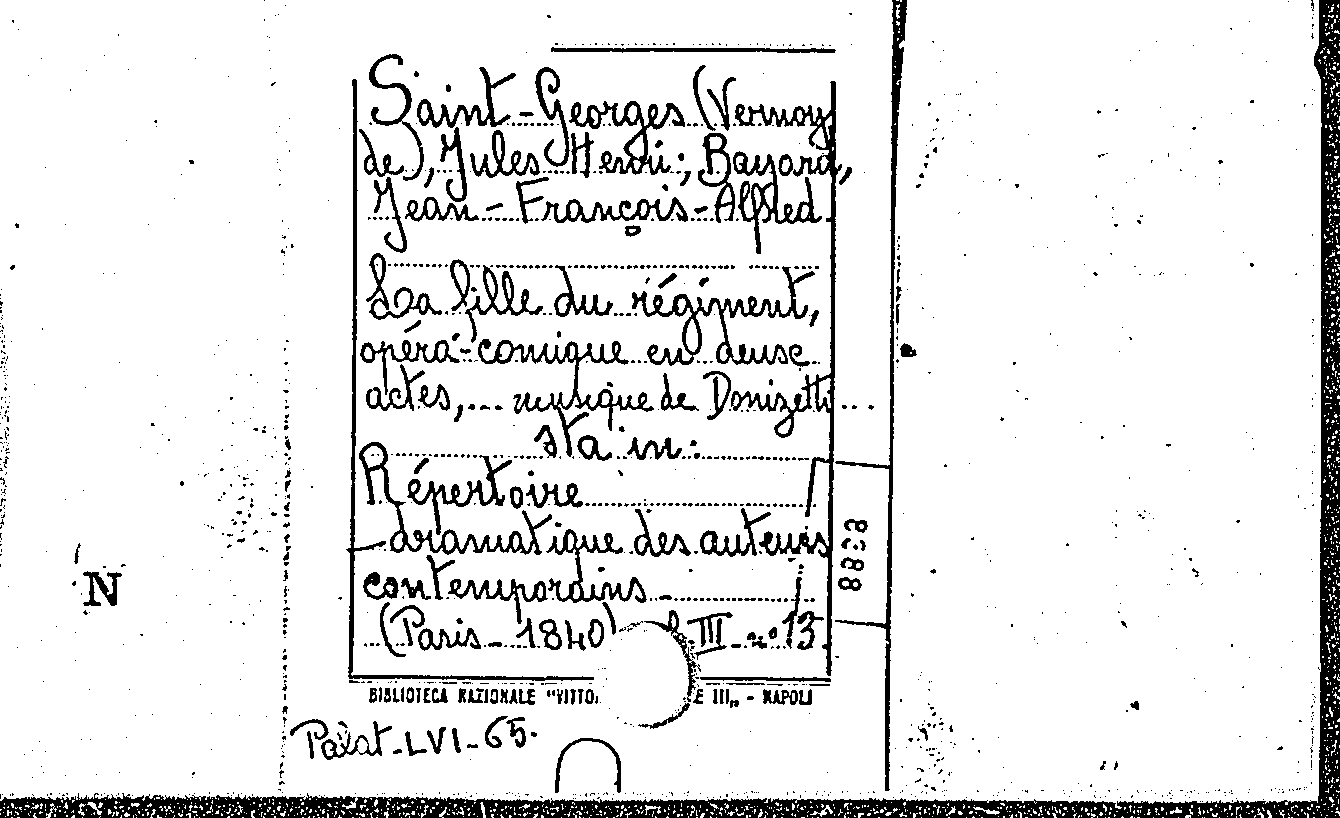 Saint-Georges (Vernoy
de), Jules Henri; Bayard,
Jean-François-Alfred.
La fille du régiment,
opéra-comique en deusc
actes,... musique de Donizetti...
sta in:
Répertoire
dramatique des auteurs
contemporains -
(Paris - 1840) III - nº 13.
BIBLIOTECA NAZIONALE "VITTO E III„ - NAPOLI
Palat-LVI-65.
N